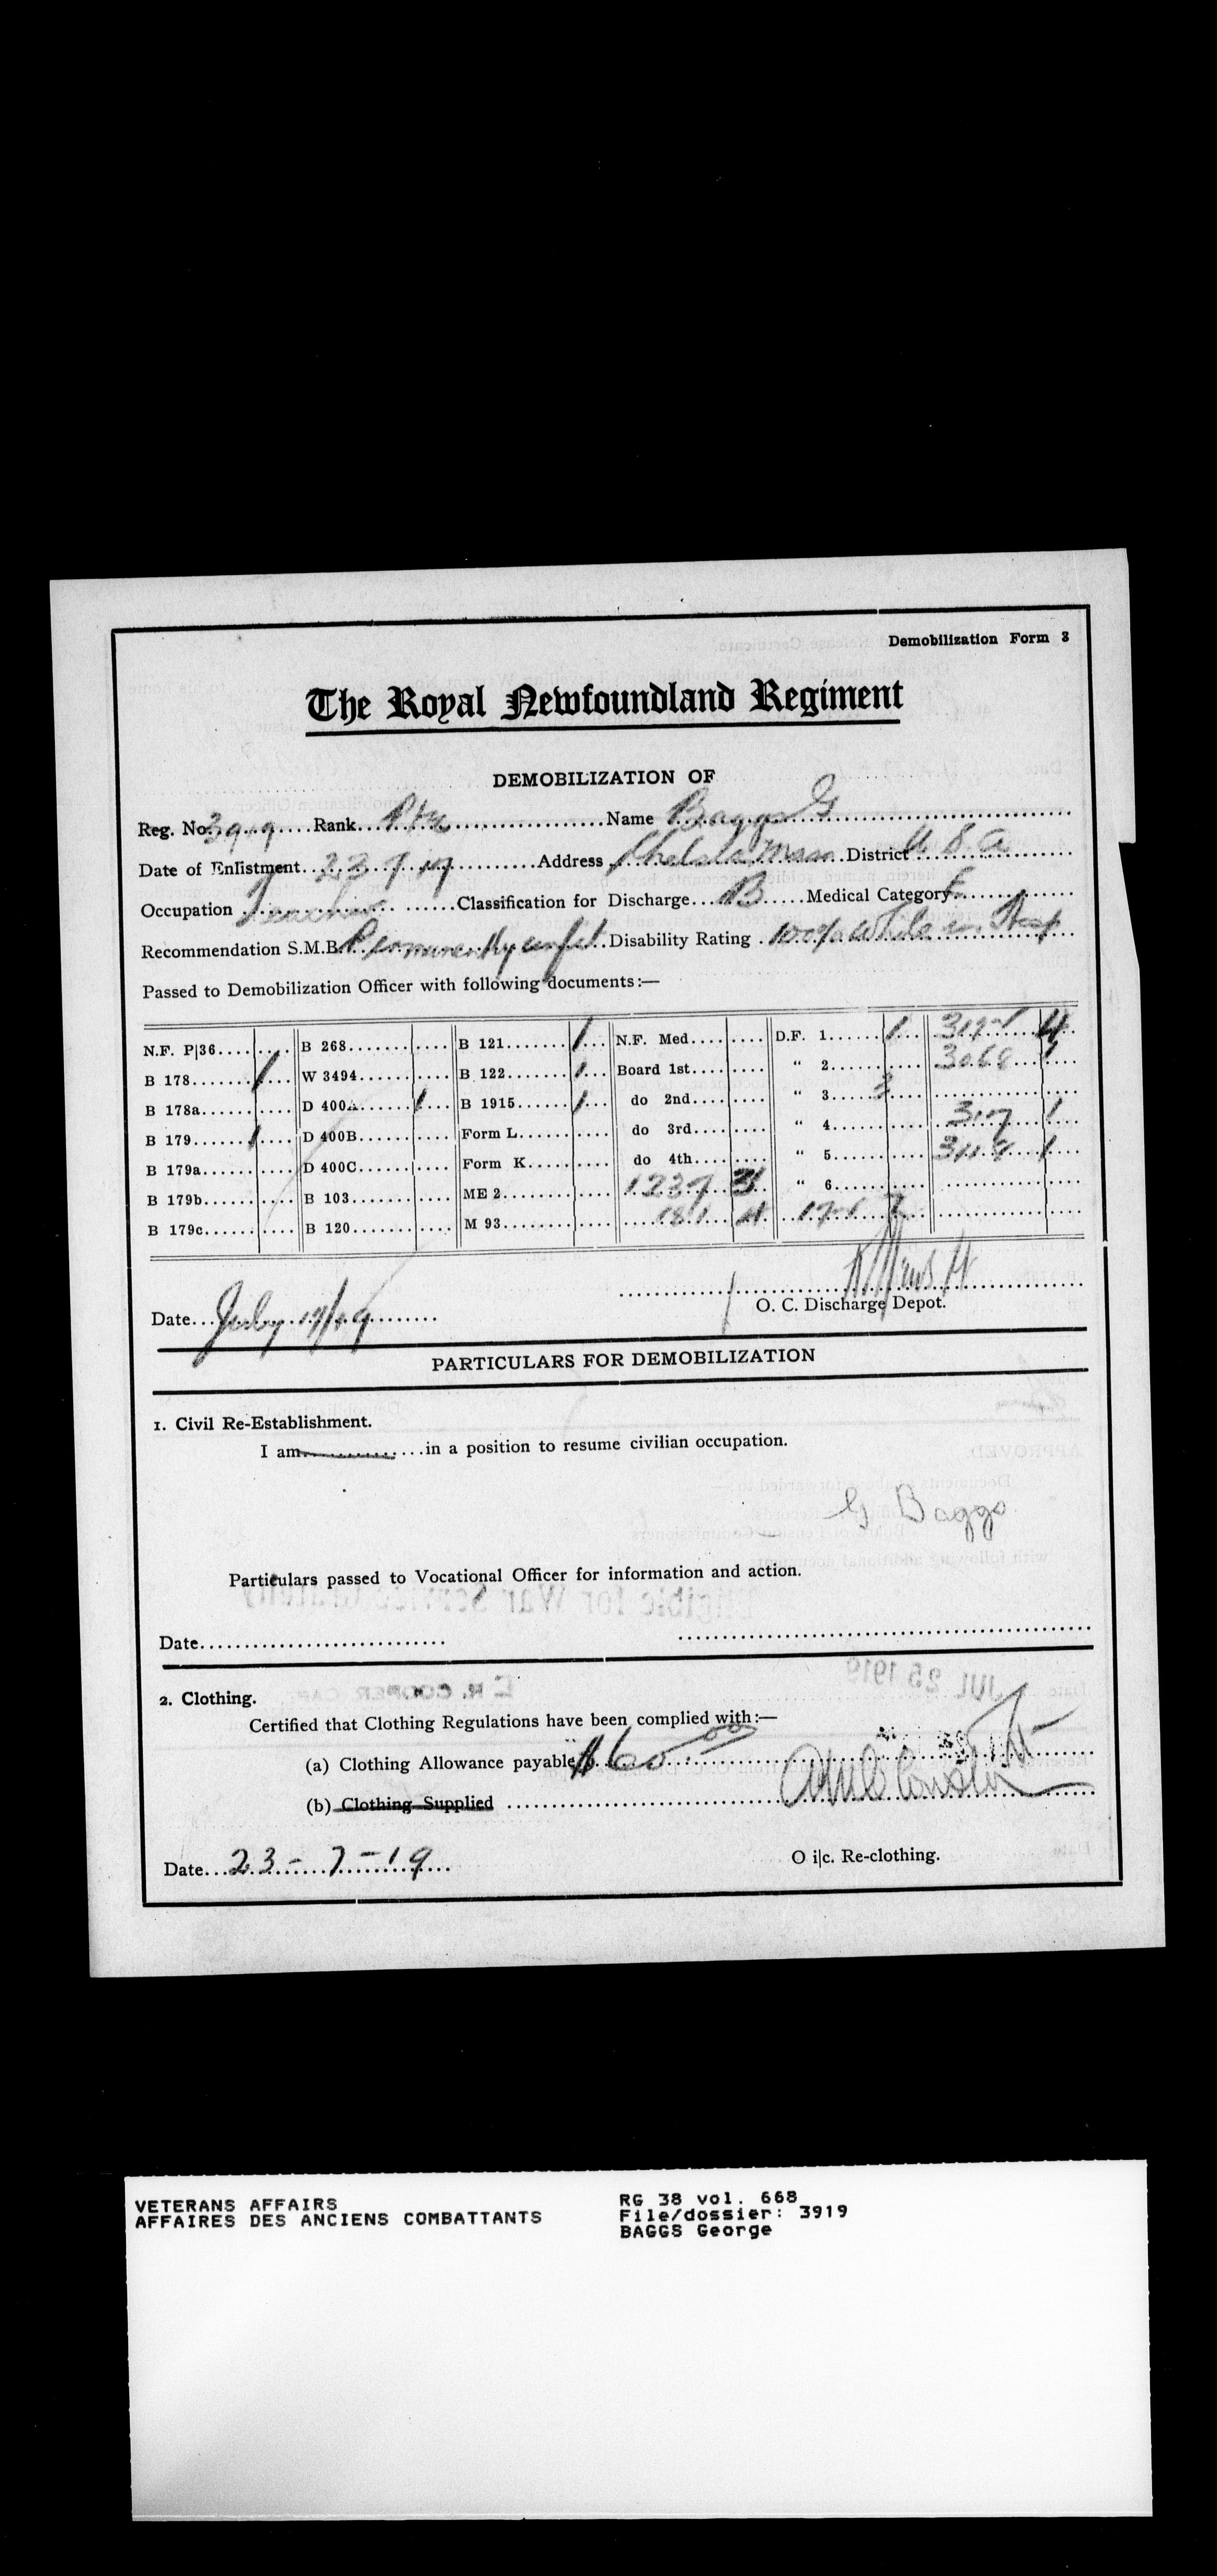 Demobilization Form 3
The Royal Newfoundland Regiment
DEMOBILIZATION OF
Reg. No. 3919 Rank Pte Name Baggs G
Date of Enlistment 23 7 17 Address Chelsea Mass District U S A
Occupation Classification for Discharge B Medical Category E
Recommendation S.M.B. Permanently unfit Disability Rating 100% while in Hosp
Passed to Demobilization Officer with following documents:—
N.F. P|36 B 268 B 121 1 N.F. Med D.F. 1 1 4
B 178 1 W 3494 B 122 1 Board 1st " 2 3068 1
B 178a D 400A 1 B 1915 1 do 2nd " 3 3
B 179 1 D 400B Form L do 3rd " 4 1
B 179a D 400C Form K do 4th " 5 1
B 179b B 103 ME 2 1237 " 6
B 179c B 120 M 93 181
Date July 17/19 O. C. Discharge Depot.
PARTICULARS FOR DEMOBILIZATION
1. Civil Re-Establishment.
I am in a position to resume civilian occupation.
G Baggs
Particulars passed to Vocational Officer for information and action.
Date
2. Clothing.
Certified that Clothing Regulations have been complied with:—
(a) Clothing Allowance payable $60.00
(b) Clothing Supplied
Date 23-7-19 O i|c. Re-clothing.
VETERANS AFFAIRS RG 38 vol. 668
AFFAIRES DES ANCIENS COMBATTANTS File/dossier: 3919
BAGGS George